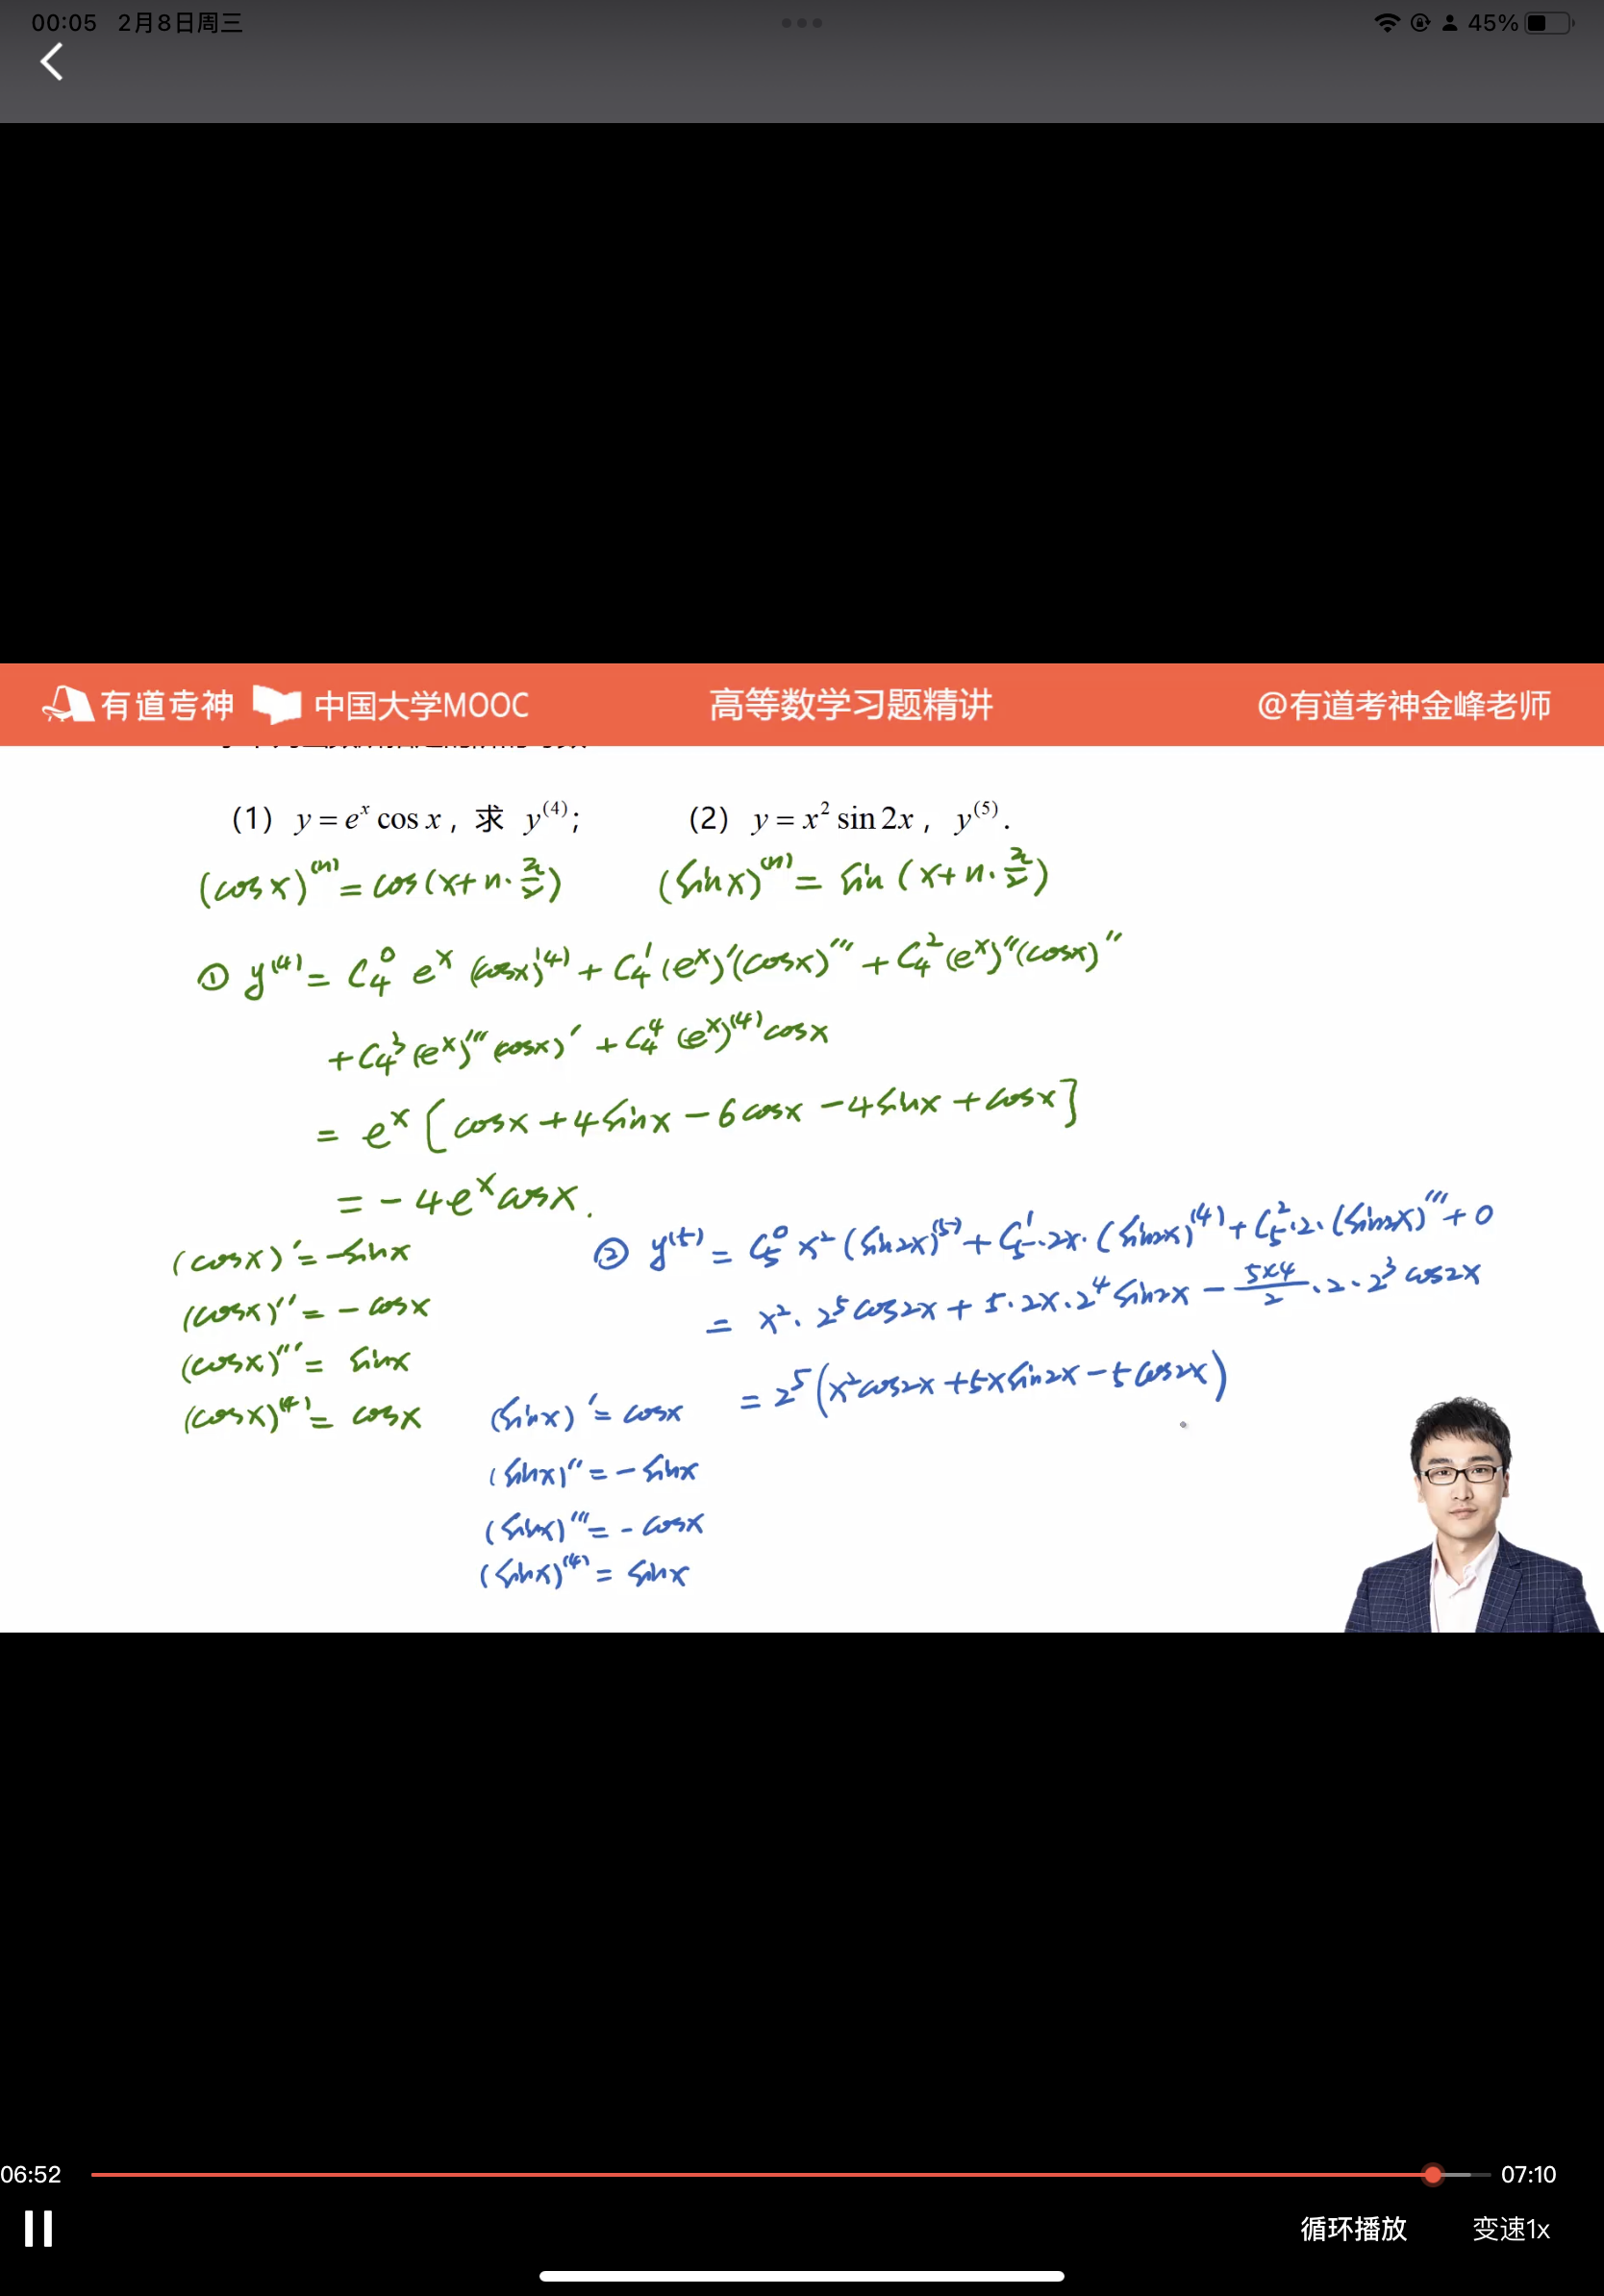 00:05 2月8日周三 45%
有道考神 中国大学MOOC 高等数学习题精讲 @有道考神金峰老师
(1) y = e^x cos x, 求 y^(4); (2) y = x^2 sin 2x, y^(5).
(cos x)^(n) = cos(x + n·π/2) (sin x)^(n) = sin(x + n·π/2)
① y^(4) = C_4^0 e^x (cosx)^(4) + C_4^1 (e^x)'(cosx)''' + C_4^2 (e^x)''(cosx)''
+ C_4^3 (e^x)''' (cosx)' + C_4^4 (e^x)^(4) cosx
= e^x [cosx + 4sinx − 6cosx − 4sinx + cosx]
= −4e^x cosx.
(cosx)' = −sinx
(cosx)'' = −cosx
(cosx)''' = sinx
(cosx)^(4) = cosx
② y^(5) = C_5^0 x^2 (sin2x)^(5) + C_5^1·2x·(sin2x)^(4) + C_5^2·2·(sin2x)''' + 0
= x^2·2^5 cos2x + 5·2x·2^4 sin2x − 5×4/2·2·2^3 cos2x
= 2^5 (x^2 cos2x + 5x sin2x − 5cos2x)
(sinx)' = cosx
(sinx)'' = −sinx
(sinx)''' = −cosx
(sinx)^(4) = sinx
06:52 07:10
循环播放 变速1x